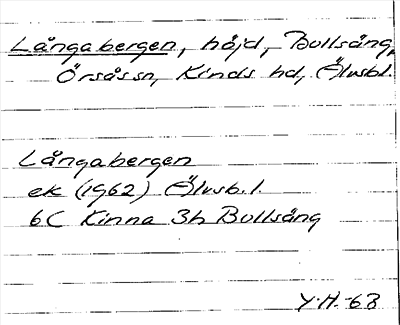 Långabergen, höjd, Bollsäng,
Örsås sn, Kinds hd, Älvsbl.
Långabergen
ek (1962) Älvsb.l
6C Kinna 3h Bollsäng
Y.H.-63